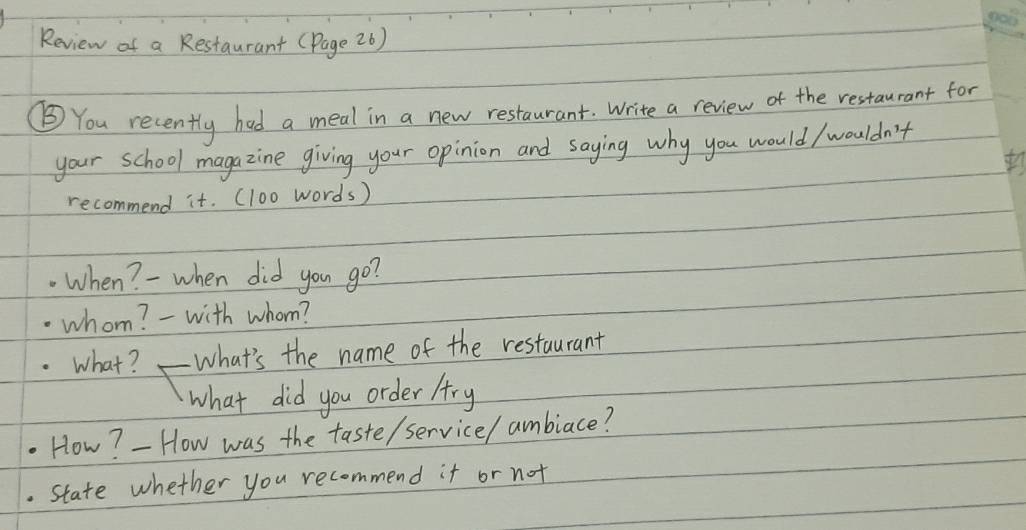 Review of a Restaurant (Page 26)
Ⓑ You recently had a meal in a new restaurant. Write a review of the restaurant for
your school magazine giving your opinion and saying why you would/wouldn't
recommend it. (100 words)
• When? - when did you go?
• whom? - with whom?
• What? - What's the name of the restaurant
What did you order /try
• How? - How was the taste/service/ambiace?
• State whether you recommend it or not